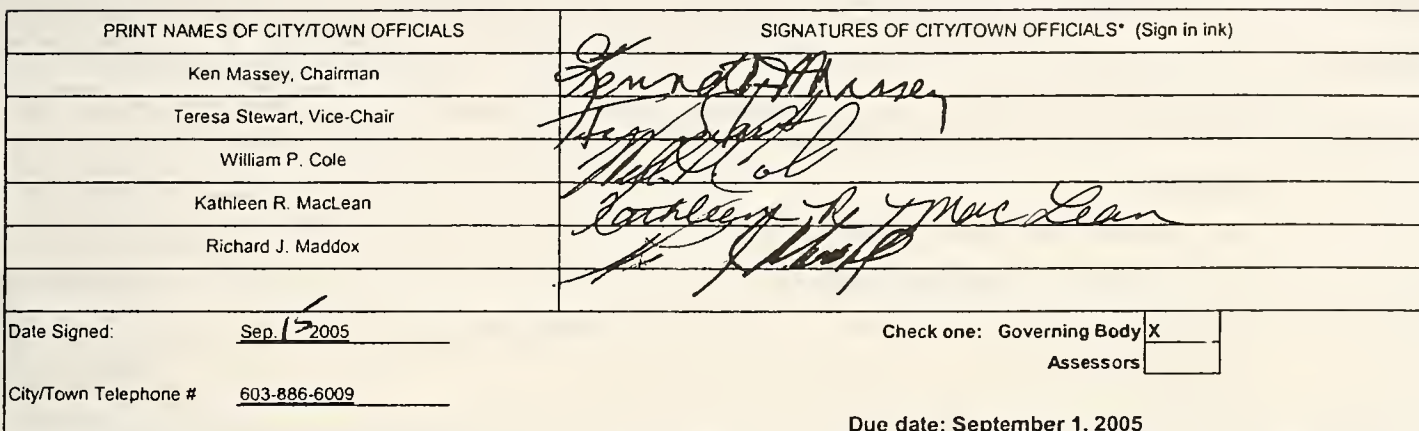 PRINT NAMES OF CITY/TOWN OFFICIALS SIGNATURES OF CITY/TOWN OFFICIALS* (Sign in ink)
Ken Massey, Chairman Kenneth Massey
Teresa Stewart, Vice-Chair
William P. Cole
Kathleen R. MacLean Kathleen R. MacLean
Richard J. Maddox
Date Signed: Sep. 15 2005 Check one: Governing Body X
Assessors
City/Town Telephone # 603-886-6009
Due date: September 1, 2005